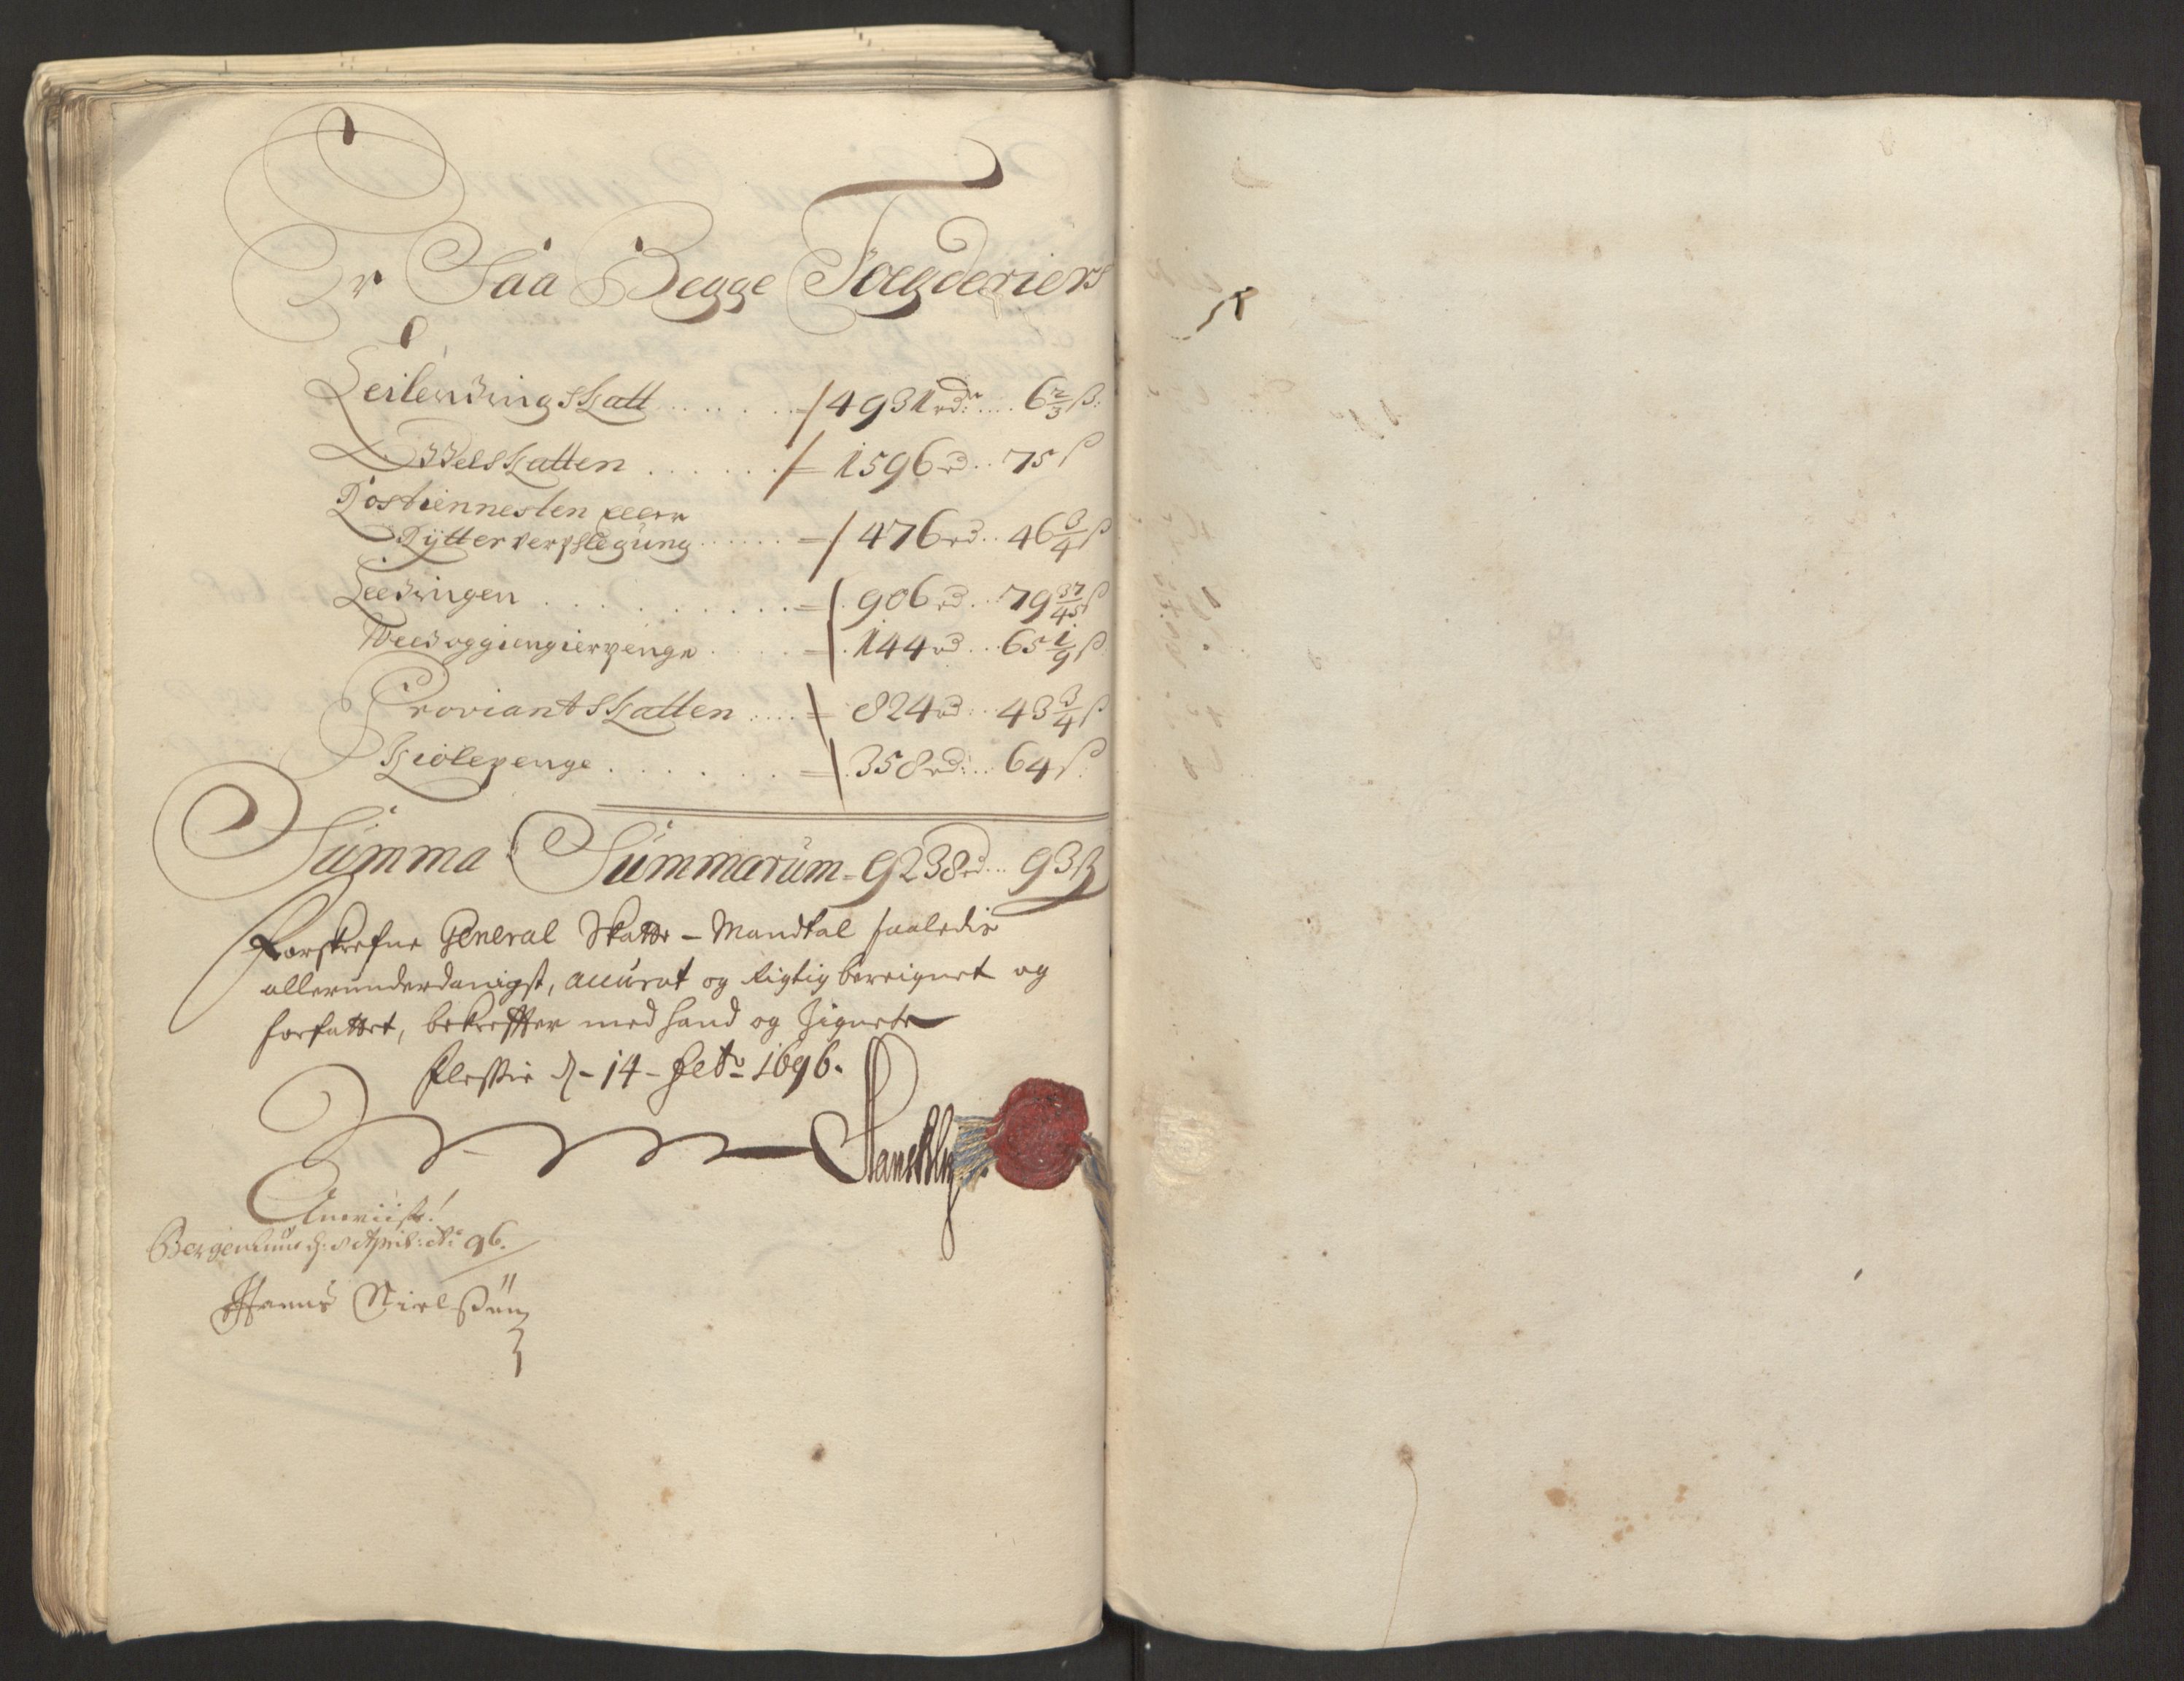 Er Saa Begge Fogderiers
Leilendings Skatt ....... 4931 rdr: .... 6 2/3 ß:
Odels Skatten ...... 1596 rd .. 75 ß
Rostiennesten eller
Rÿtterverpflegüng ..... 476 rd .. 46 3/4 ß
Leedingen .......... 906 rd .. 79 37/45 ß
Weed og giengierpenge .... 144 rd ... 65 1/9 ß
Proviant Skatten .... 824 rd ... 43 3/4 ß
Kiølepenge ...... 358 rd: .. 64 ß:
Summa Summarüm - 9238 rd ... 93 ß
Forskrefne General Skatte - Mandtal saaledis
allerunderdanigst, accurat og rigtig beregnet og
forfattet, bekreffter med haand og Signete
d - 14 - Febr: 1696.
Anviist!
Bergenhuus d: 8 April: Ao: 96.
Hanns Nielssün